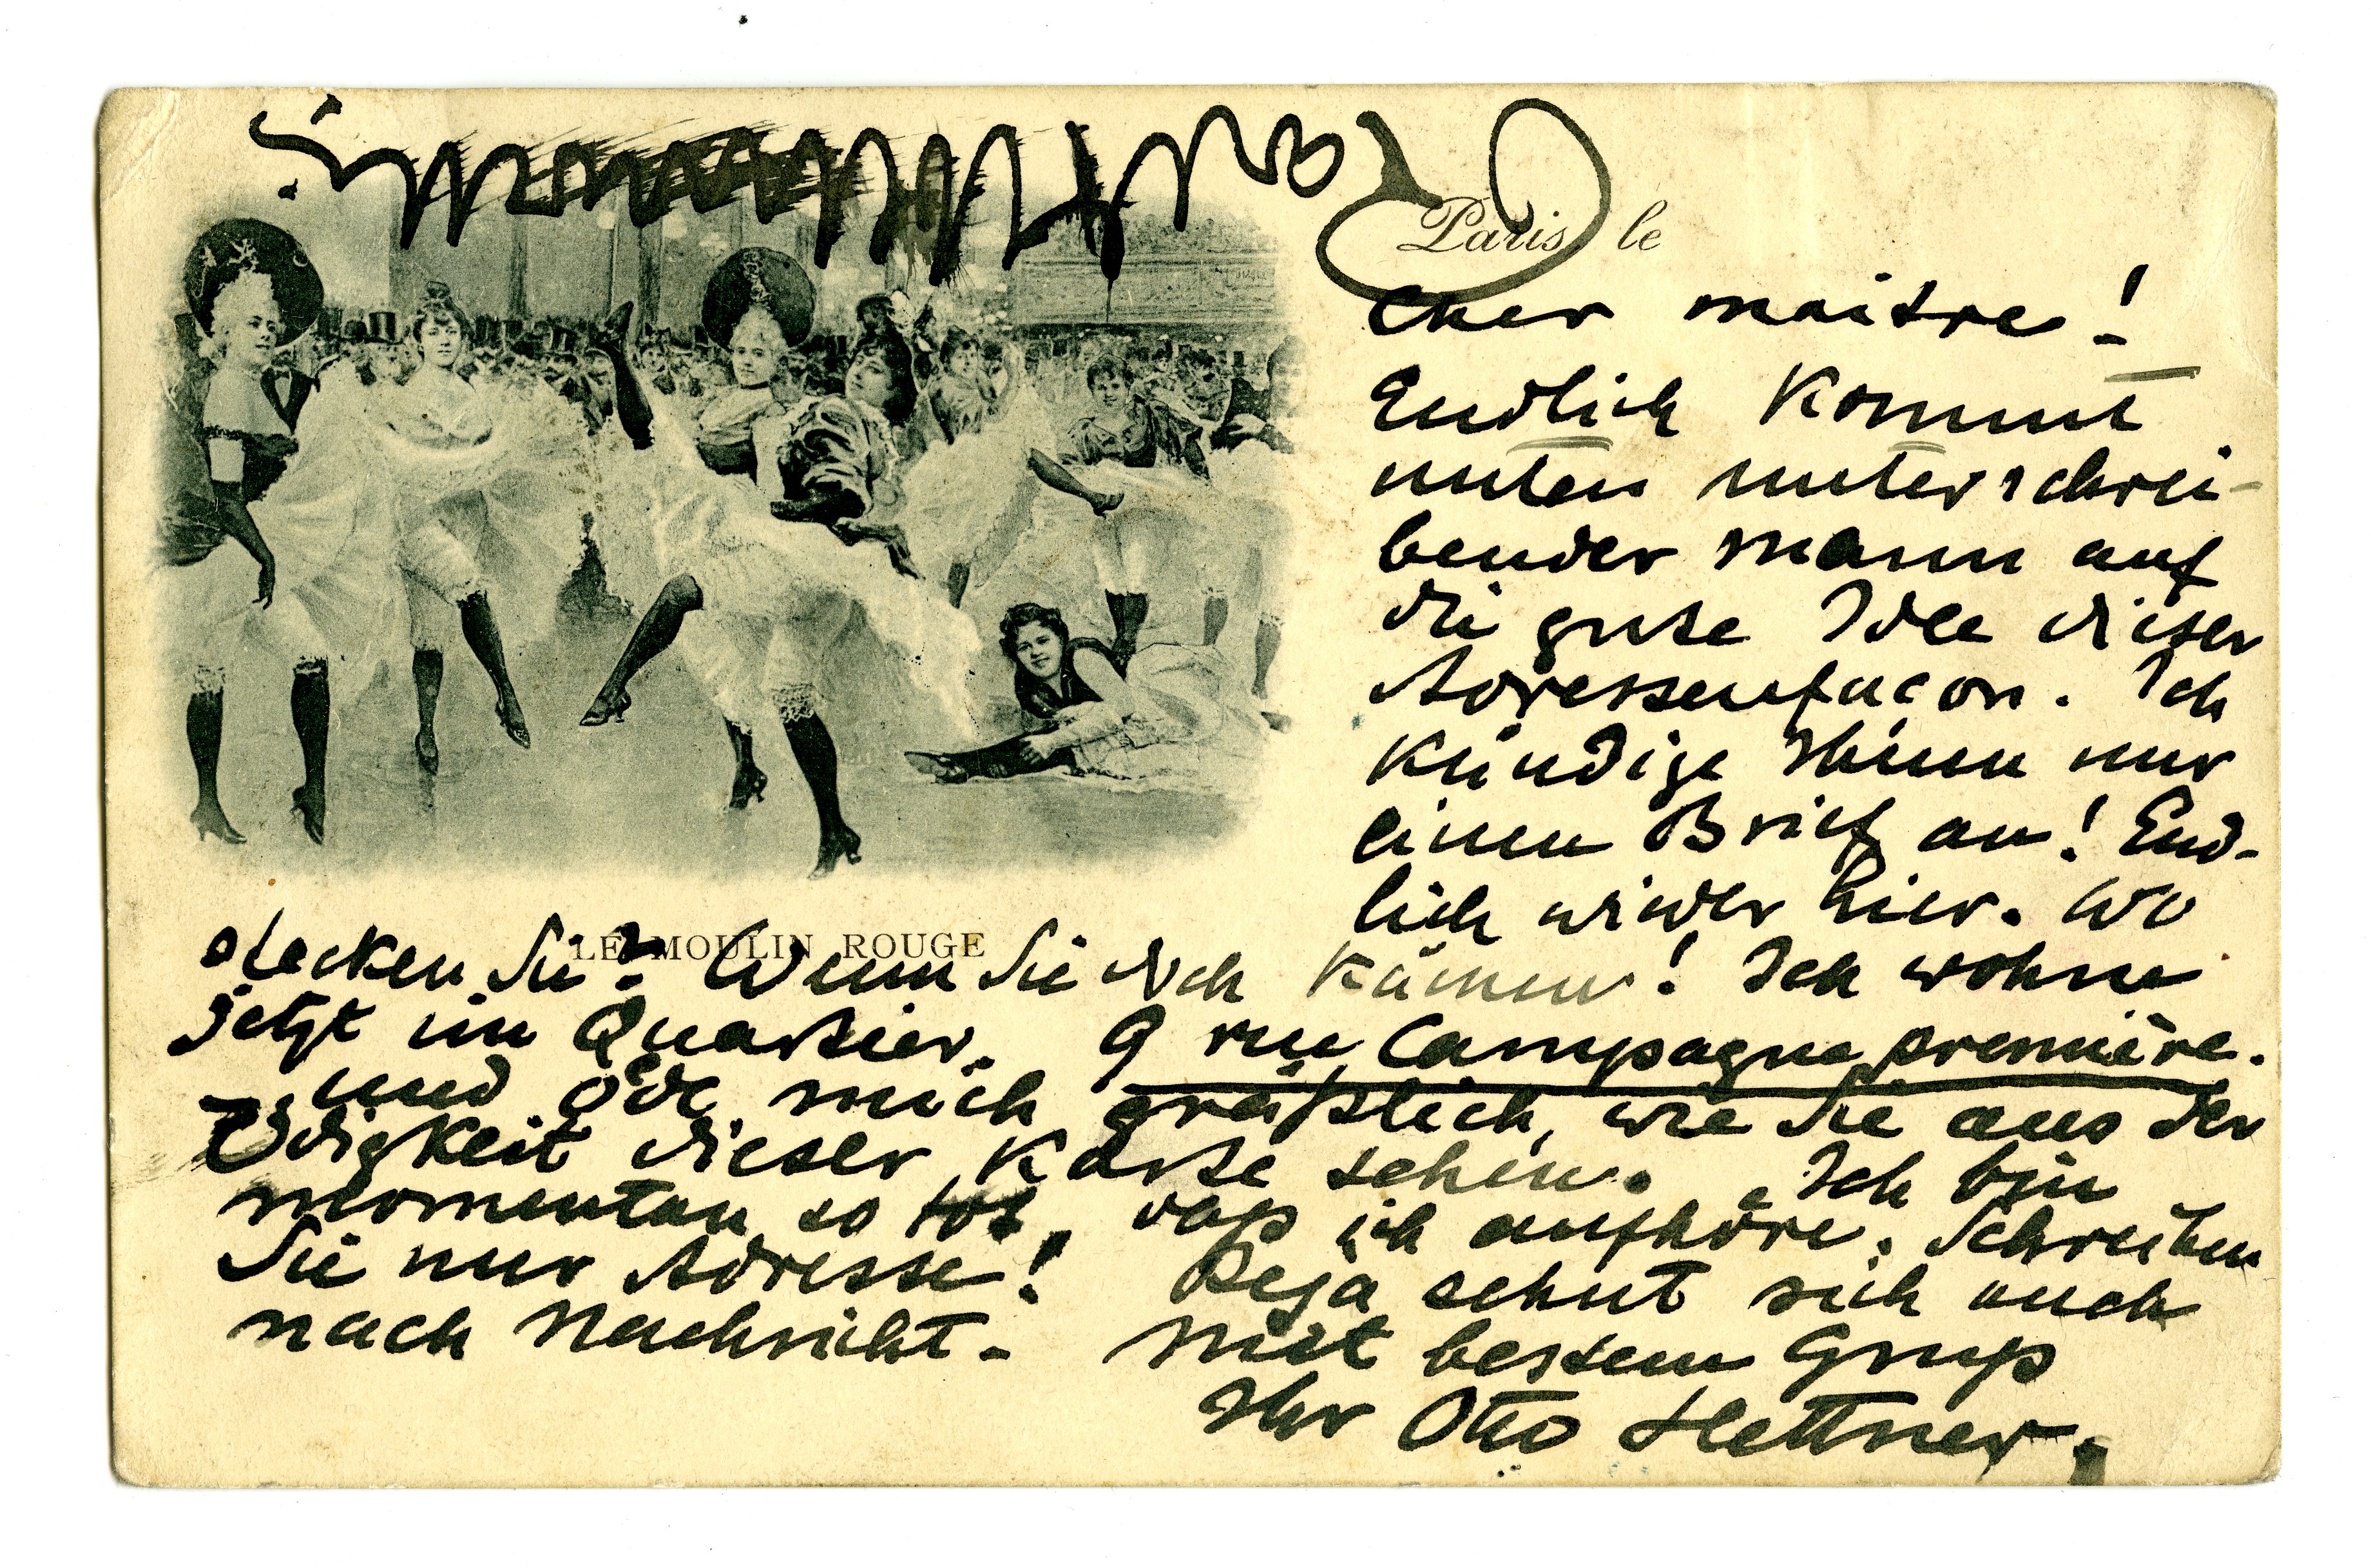 Paris, le
cher maitre!
Endlich kommt
unten unterschrei-
bender mann auf
die gute Idee dieser
Adressenfacon. Ich
kündige Ihnen nur
einen Brief an! End-
lich wieder hier. Wo
LE MOULIN ROUGE
stecken Sie? Wenn Sie doch kämen! Ich wohne
jetzt im Quartier. 9 rue Campagne première.
und öde mich gräßlich, wie Sie aus der
Ödigkeit dieser Karte sehen. Ich bin
momentan so tot, daß ich aufhöre. Schreiben
Sie nur Adresse! Reja sehnt sich auch
nach Nachricht. Mit bestem Gruß
Ihr Otto Hettner.